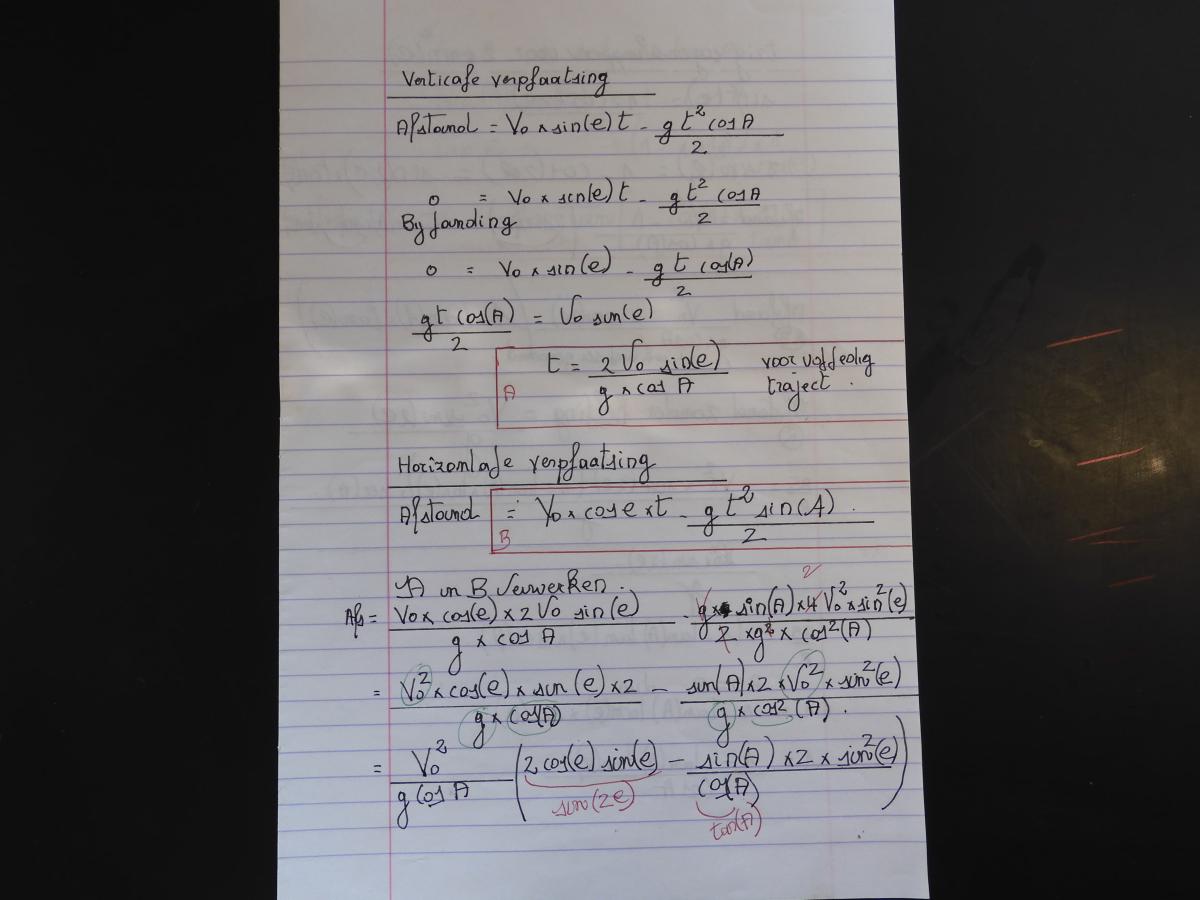 Verticale verplaatsing
Afstand = V₀ × sin(e) t - (g t² cos A)/2
0 = V₀ × sin(e) t - (g t² cos A)/2
By landing
0 = V₀ × sin(e) - (g t cos(A))/2
(g t cos(A))/2 = V₀ sin(e)
A t = (2 V₀ sin(e))/(g × cos A) voor volledig traject.
Horizontale verplaatsing
Afstand = V₀ × cos e × t - (g t² sin(A))/2 .
B
A in B verwerken.
Afs = (V₀ × cos(e) × 2 V₀ sin(e))/(g × cos A) - (g × sin(A) × 4 V₀² × sin²(e))/(2 × g² × cos²(A))
2
= (V₀² × cos(e) × sin(e) × 2)/(g × cos(A)) - (sin(A) × 2 × V₀² × sin²(e))/(g × cos²(A)) .
= V₀²/(g cos A) (2 cos(e) sin(e) - (sin(A) × 2 × sin²(e))/cos(A))
sin(2e)
tan(A)